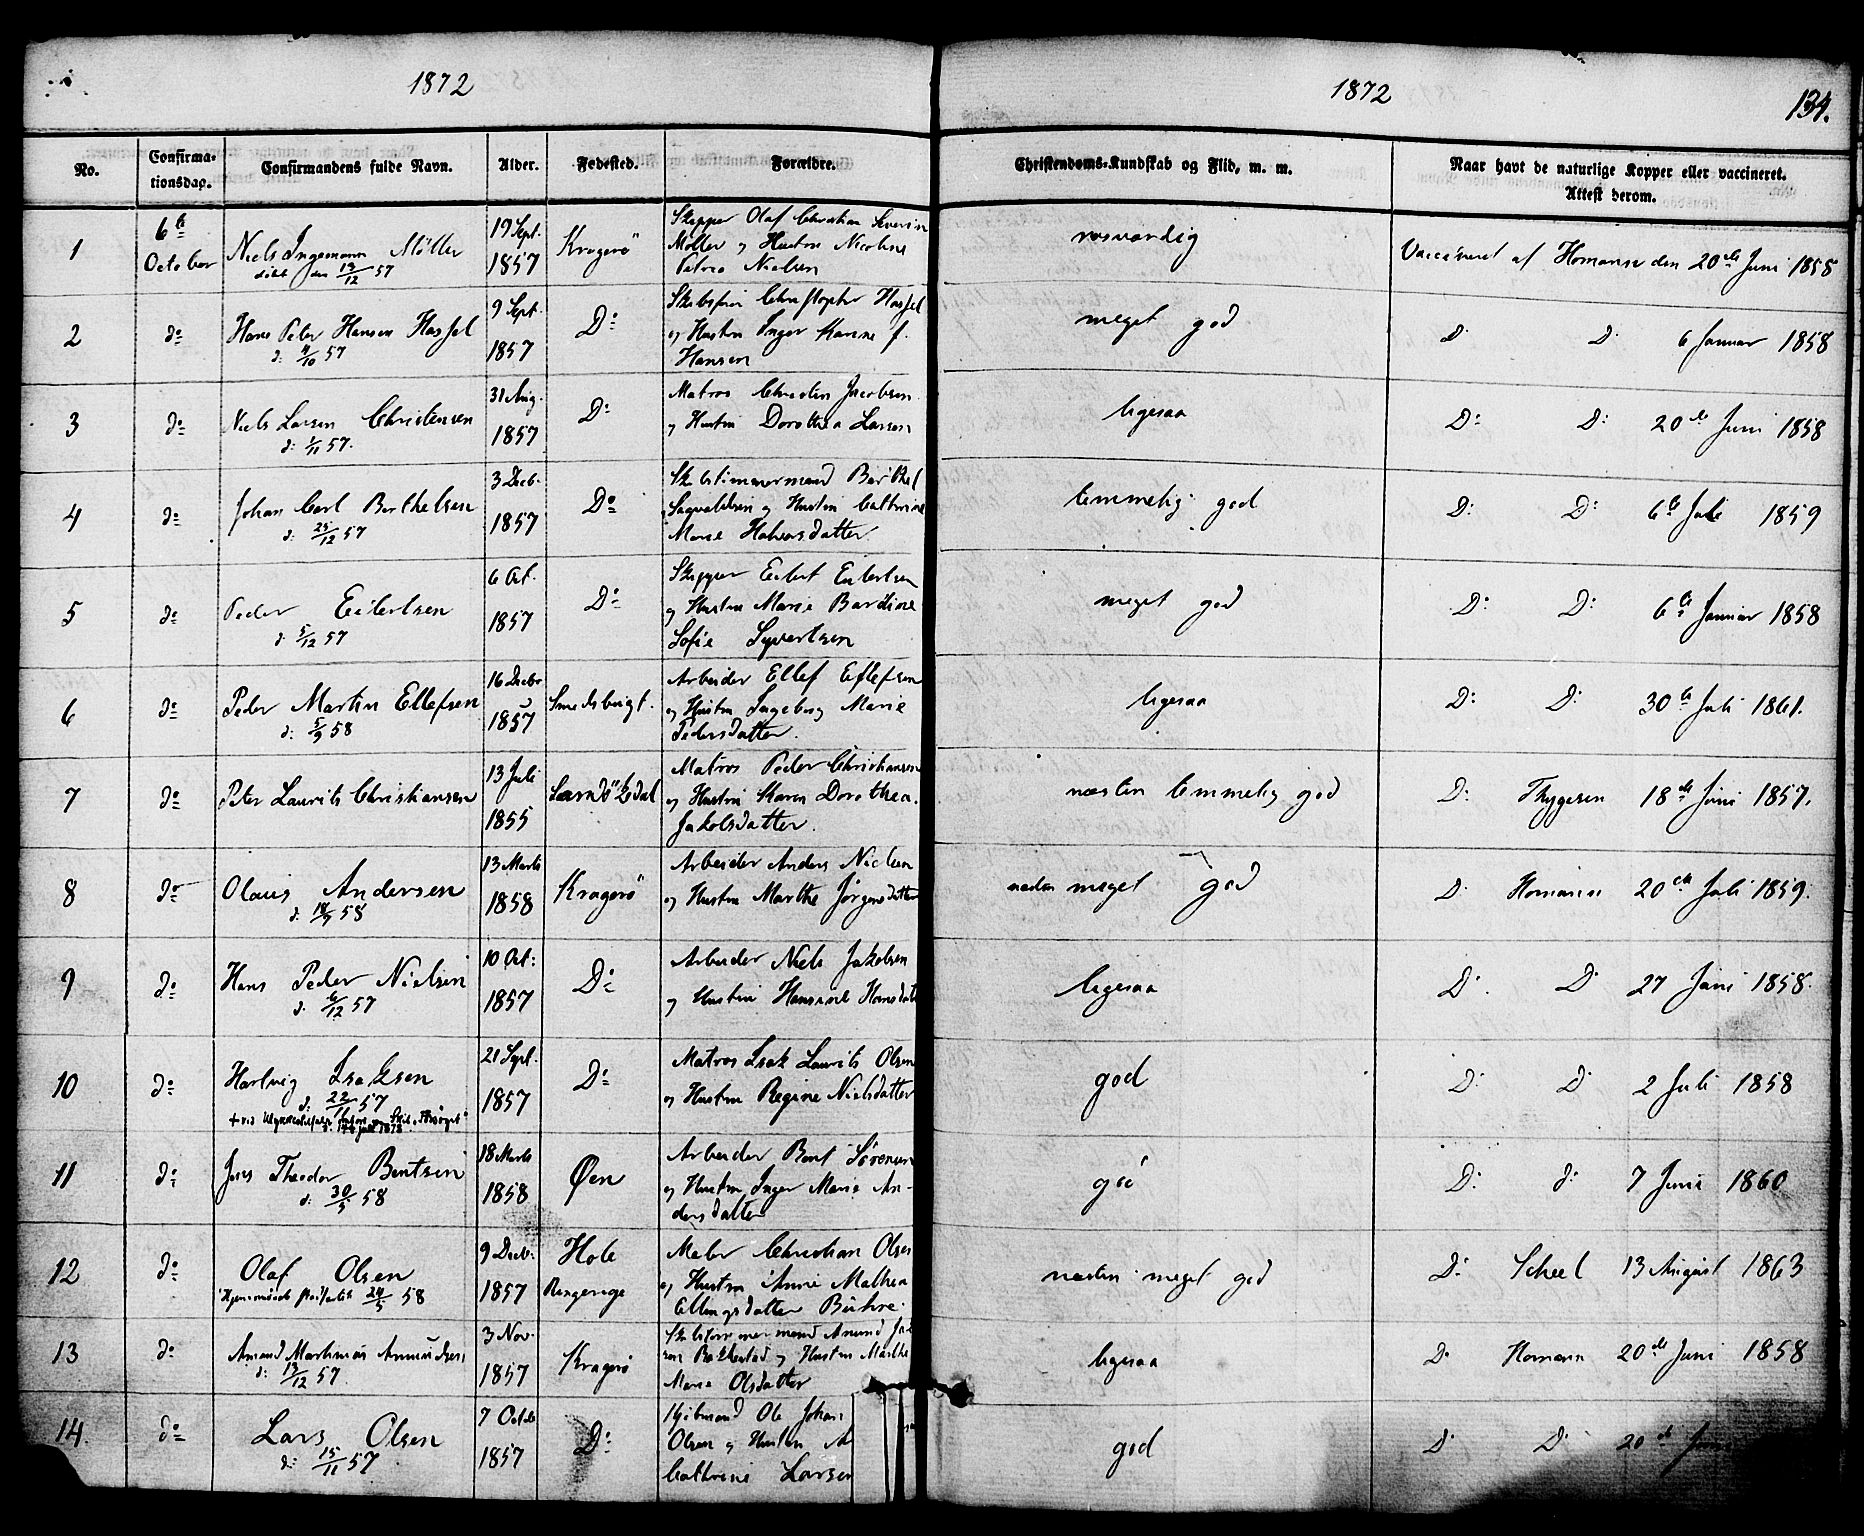 1872
1872
134.
No.
Confirma-
tionsdag.
Confirmandens fulde Navn.
Alder.
Fødested.
Forældre.
Christendoms-Kundskab og Flid, m. m.
Naar havt de naturlige Kopper eller vaccineret.
Attest derom.
1
6te
October
Niels Ingemann Møller
døbt den 13/12 57
19 Sept.
1857
Kragerö
Skipper Olaf Christian Severin
Møller og Hustru Nicoline
Petrea Nielsen
rosværdig
Vaccineret af Homann den 20de Juni 1858
2
do
Hans Peter Hansen Hassel
d: 4/10 57
9 Sept.
1857
Do
Christopher Hassel
og Hustru Inger Karine f.
Hansen
meget god
D: D: 6 Januar 1858
3
do
Niels Larsen Christensen
d: 1/11 57.
31 Aug.
1857
D:
Matros Christen Jacobsen
og Hustru Dorothea Larsen
ligesaa
D: D: 20de Juni 1858
4
do
Johan Carl Berthelsen
d: 25/12 57
3 Decb.
1857
Do
Skibstimmermand Barthel
og Hustru Cathrine
Marie Halvorsdatter
temmelig god
D: D: 6te Juli 1859
5
do
Peder Eilertsen
d: 5/12 57
6 Oct.
1857
Do
Skipper Eilert Eilertsen
og Hustru Marie Bardine
Sofie Syvertsen
meget god
D: D: 6te Januar 1858
6
do
Peder Martin Ellefsen
d: 5/9 58
16 Decbr
1857
Smedsbugt.
Arbeider Ellef Ellefsen
og Hustru Ingeborg Marie
Pedersdatter.
ligesaa
D: D: 30te Juli 1861.
7
do
Peter Laurits Christiansen
13 Juli
1855
Sandökedal
Matros Peder Christiansen
og Hustru Karen Dorothea
Jakobsdatter.
næsten temmelig god
D: Thygesen 18de Juni 1857.
8
do
Olaus Andersen
d: 18/7 58
13 Marts
1858
Kragerö
Arbeider Anders Nielsen
og Hustru Marthe Jørgensdatter
næsten meget god
D: Homann 20de Juli 1859.
9
do
Hans Peder Nielsen
d. 6/12 57
10 Oct:
1857
D:
Arbeider Niels Jakobsen
og Hustru Hansine Hansdatt
ligesaa
D: D: 27 Juni 1858.
10
do
Hartvig Isaksen
d: 22/11 57
+ ved Ulykkestilfælde
21 Sept.
1857
D:
Matros Isak Laurits Olsen
og Hustru Regine Nielsdatter
god
D: D: 2 Juli 1858
11
do
Jens Theodor Bentsen
d: 30/5 58
18 Marts
1858
Øen
Arbeider Bent Sörensen
og Hustru Inger Marie An-
dersdatter
god
D: d: 7 Juni 1860
12
do
Olaf Olsen
Hjemmedøbt 24/5 58
9 Decb.
1857
Hole
Ringerige
Maler Christian Olsen
og Hustru Anne Mathea
Ellingsdatter
næsten meget god
D: Scheel 13 August 1863
13
do
Amund Martinius Amundsen
d: 13/12 57.
3 Nov.
1857
Kragerö
Skibstömmermand Amund
og Hustru Marthe
Marie Olsdatter
ligesaa
D: Homann 20de Juni 1858
14.
do
Lars Olsen
d: 15/11 57
7 Octob
1857
D:
Kjöbmand Ole Johan
Olsen og Hustru
Cathrine Larsen
god
D: D: 20de Juni